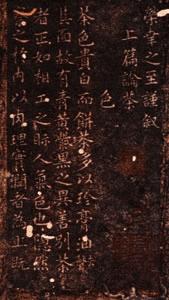 榮幸之至謹叙
上篇論茶
色
茶色貴白而餅茶多以珍膏油去聲
其面故有青黃紫黑之異善別茶
者正如相工之瞟人氣色也隱然
察之於內以肉理實潤者為上既